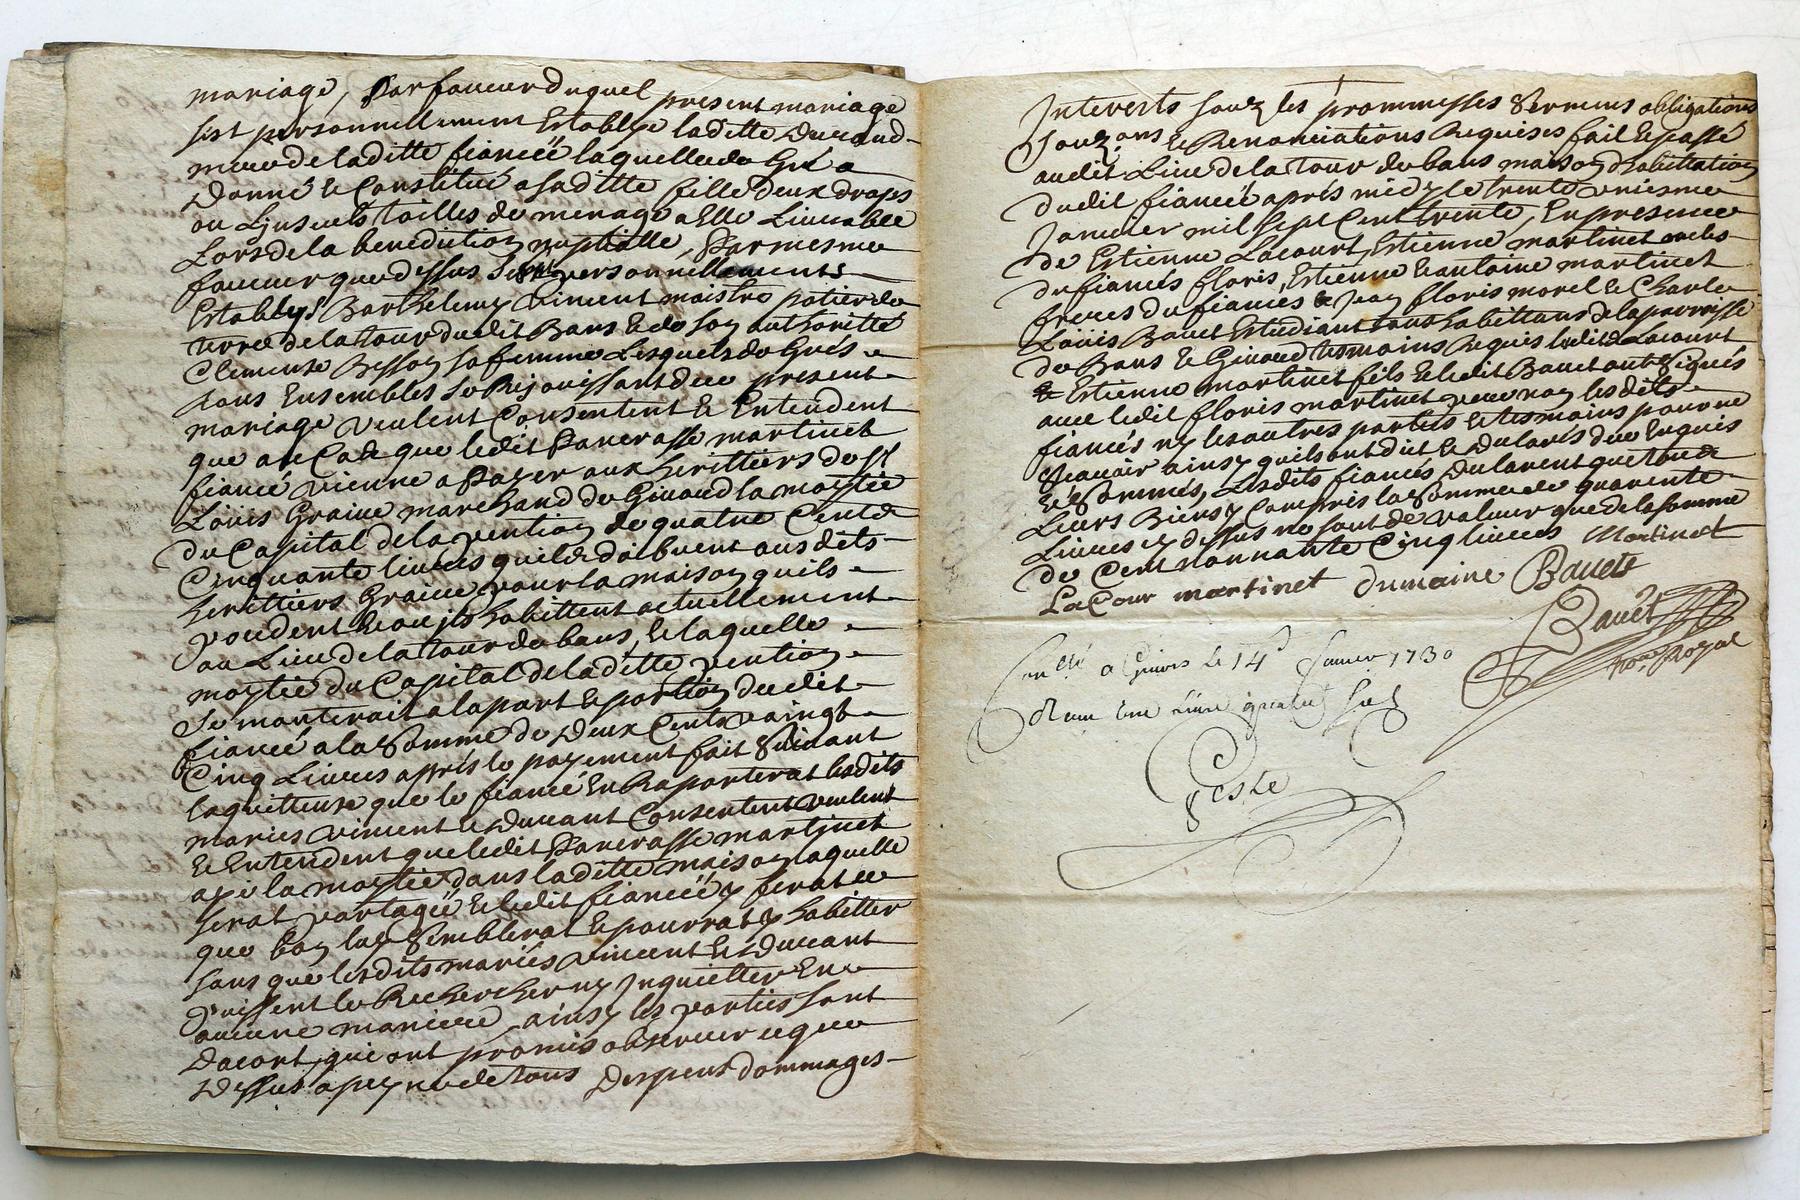 mariage, Par faueur duquel present mariage
s'est personnellement Establye laditte Durand
mere de laditte fiancéé laquelle de Gré a
Donné & Constitué a saditte fille deux draps
ou Linseuls toilles de menage a Elle Liurable
Lors de la benediction nuptialle, Par mesme
faueur que dessus personnellements
Establys Barthelemy Vincent maistre potier de
terre de la tour dudit Bans & de son authorité
Clemense Besson sa femme Lesquels de Grés
tous Ensembles se Rejouissant de ce present
mariage veulent Consentent & Entendent
que au Cas que ledit Pancrasse martinet
fiancé vienne a Payer aux heritiers de sr
Louis Graine marchand de Giuord la moytié
du Capital de la pention de quatre Cents
Cinquante liures quils doibuent ausdits
heritiers Graine pour la maison quils
possedent & ou ils habittent actuellement
au Lieu de la tour de bans, & laquelle
moytié du Capital de laditte pention
se monterait a la part & portion dudit
fiancé a la somme de Deux Cents vaingt
Cinq Liures apprés le payement fait Suiuant
la quittense que le fiancé En Raporterat lesdits
mariés vincent & Durant Consentent veulent
& Entendent que ledit Pancrasse martinet
aye la moytié dans laditte maison laquelle
serat partagéé & ledit fiancéé y ferat ce
que bon luy Semblerat & pourrat y habitter
sans que lesdits mariés vincent & Durant
puissent le Rechercher ny Inquietter En
aucune maniere, ainsy les parties sont
Dacort, qui ont promis obseruer ce que
Dessus a peyne de tous Despens dommages
Interests souz les prommesses Serments obligations
Souz & Renonciations Requises fait & passé
audit Lieu de la tour de bans maison d'habittation
dudit fiancéé aprés midy le trente uniesme
Januier mil sept Cent trente, En presence
de Estienne Lacourt, Estienne martinet
du fiancés floris, Estienne & antoine martinet
freres du fiancés & Jean floris morel & Charle
Louis Bauet Estudiant tous habittans de la parroisse
de Bans & Giuord tesmoins Requis ledit Lacourt
& Estienne martinet fils & ledit Bauet ont Signés
auec ledit floris martinet pere non lesdits
fiancés ny les autres parties & tesmoins pour ne
Scauoir ainsy quils ont dit & declarés de ce Enquis
& Sommés, Lesdits fiancés declarent que tous
Leurs Biens y Compris la Somme de quarente
Liures cy dessus ne sont de valeur que de la somme
de Cent nonnante Cinq liures Martinet
LaCour martinet Dumaine Bauet
Bauet
nore Royal
Conllé a Giuors le 14e 1730
Receu une Liure quatre sols
Geste